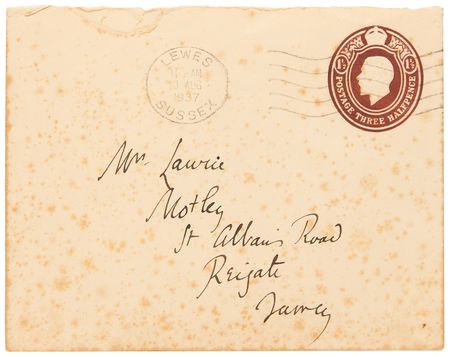 LEWES
11 AM
AUG
1937
SUSSEX
1½ 1½
POSTAGE THREE HALFPENCE
Mr. Lawrie
Motley
St Albans Road
Reigate
Surrey